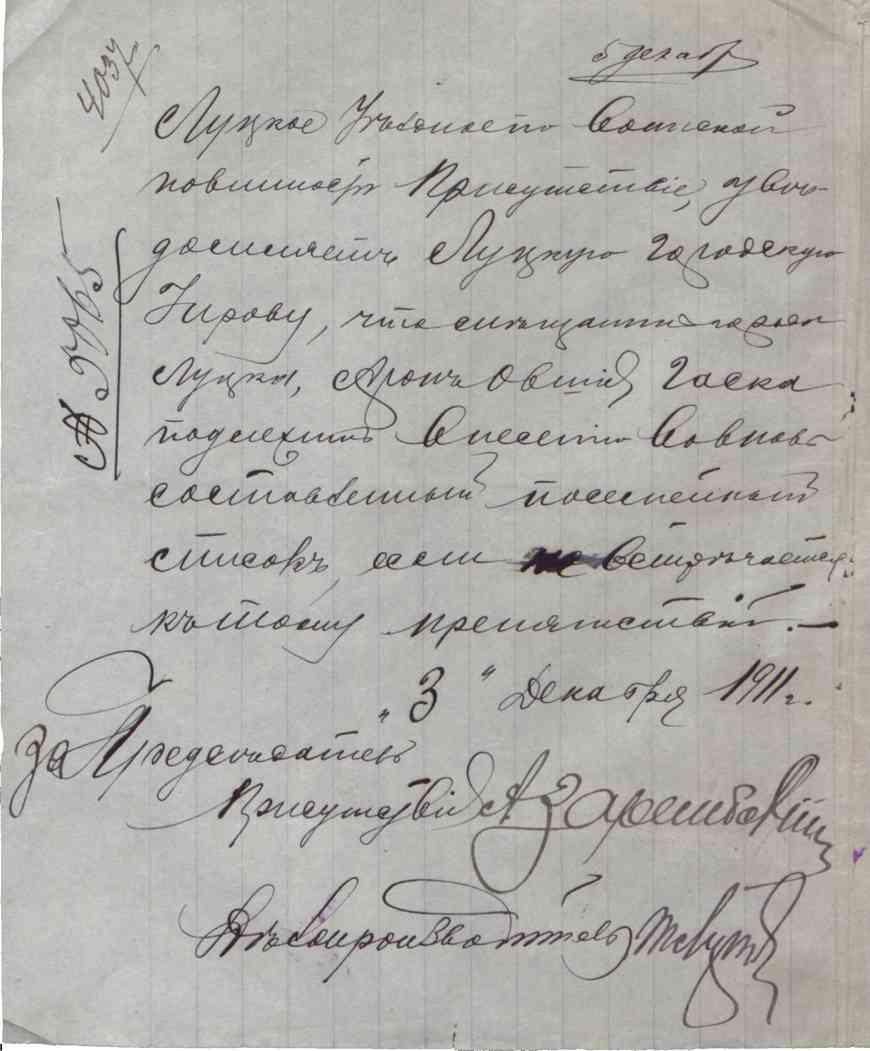 5 декабр
4034
Луцкое Уѣздное по Воинской
повинности Присутствіе, увѣ-
домляетъ Луцкую Городскую
Управу, что мѣщанинъ города
Луцка, Аронъ Овшій Гаска
подлежитъ внесенію во вновь
составленный посемейный
списокъ, если не встрѣчается
къ тому препятствій. —
"3" Декабря 1911 г.
За Предсѣдателя
Присутствія
Дѣлопроизводитель